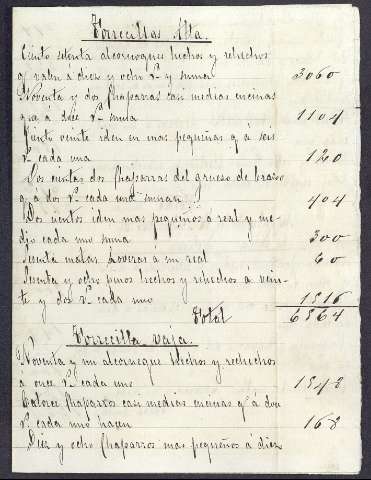 Torrecillas Alta.
Ciento setenta alcornoques hechos y rehechos
q. valen á diez y ocho r.s y suman 3060
Noventa y dos chaparras casi medias encinas
que á doce r.s suma 1104
Ciento veinte iden en mas pequeñas q. á seis
r.s cada una 120
Dos cientas dos chaparras del grueso de brazo
q. a dos r.s cada una suman 404
Dos cientos iden mas pequeños á real y me-
dio cada uno suma 300
Sesenta matas á un real 60
Sesenta y ocho pinos hechos y rehechos á vein-
te y dos r.s cada uno 1516
Total 6564
Torrecilla vaja.
Noventa y un alcornoque hechos y rechechos
a once r.s cada uno 1548
Catorce chaparros casi medias encinas q. á doce
r.s cada uno hacen 168
Diez y ocho chaparros mas pequeños á diez